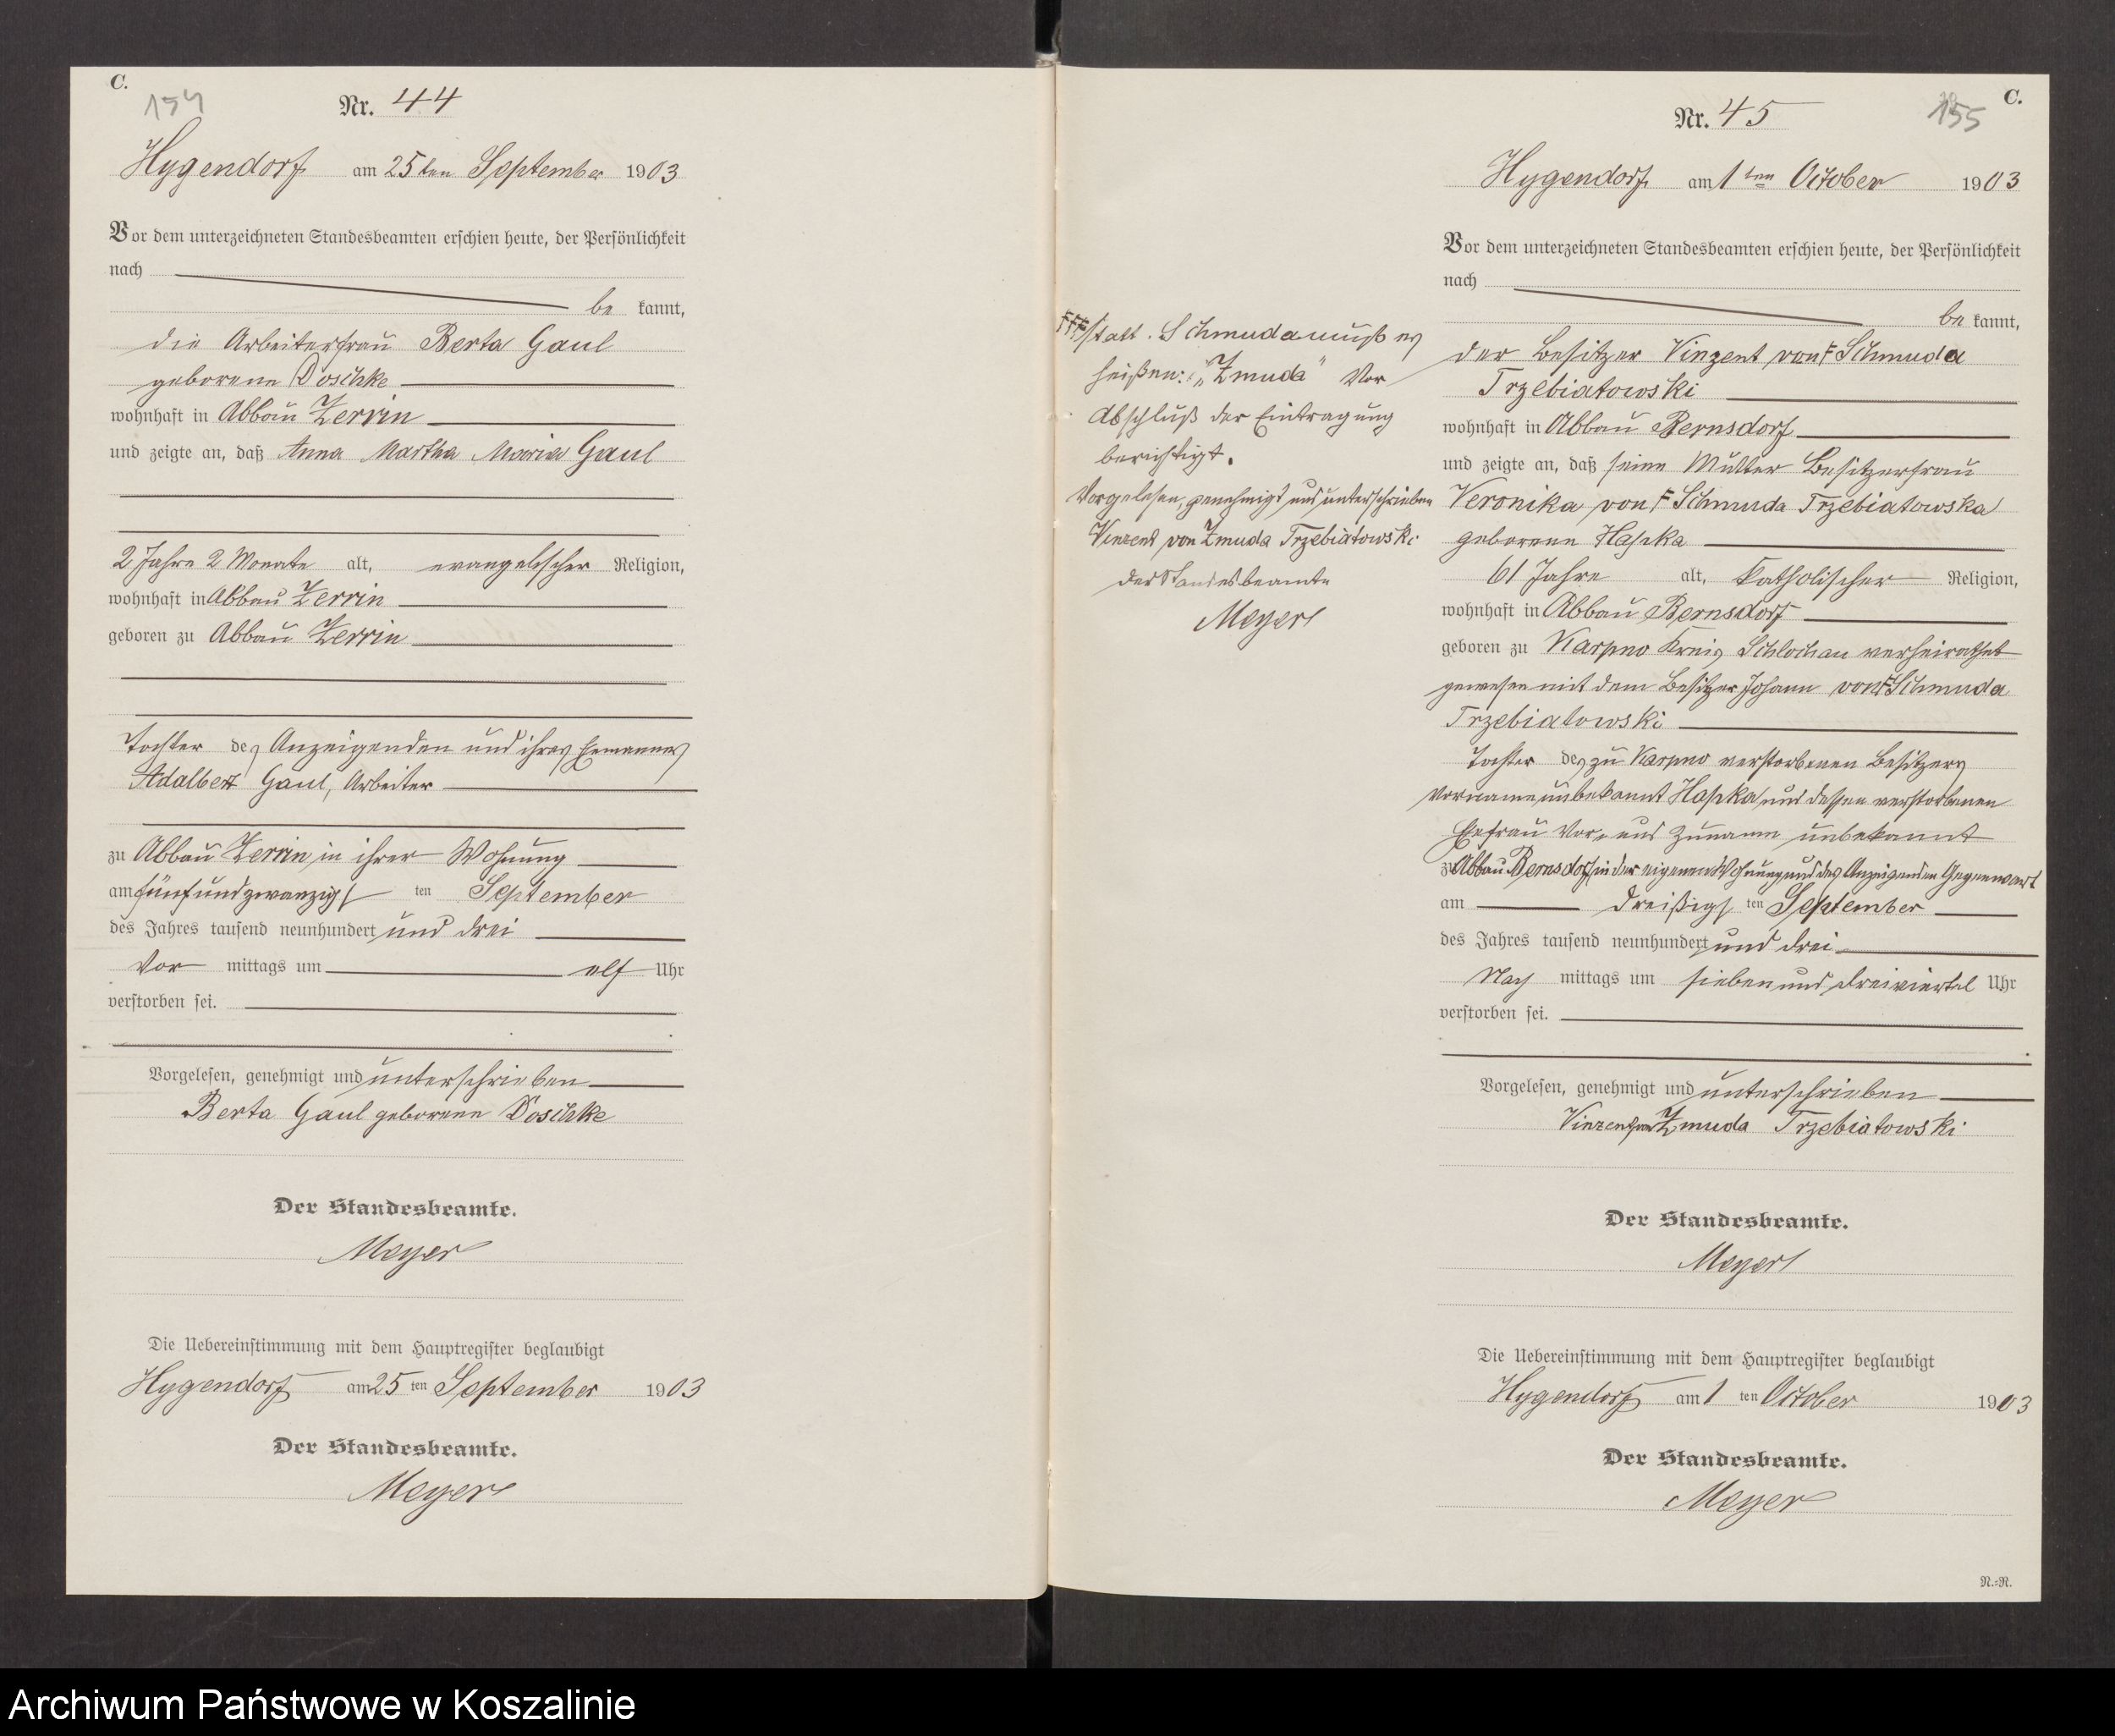 C.
154
Nr. 44
Hygendorf am 25ten September 1903
Vor dem unterzeichneten Standesbeamten erschien heute, der Persönlichkeit
nach
be kannt,
die Arbeiterfrau Berta Gaul
geborene Doschke
wohnhaft in Abbau Zerrin
und zeigte an, daß Anna Martha Maria Gaul
2 Jahre 2 Monate alt, evangelischer Religion,
wohnhaft in Abbau Zerrin
geboren zu Abbau Zerrin
Tochter des Anzeigenden und ihres Ehemannes
Adalbert Gaul, Arbeiter
zu Abbau Zerrin in ihrer Wohnung
am fünfundzwanzigsten September
des Jahres tausend neunhundert und drei
Vor mittags um elf Uhr
verstorben sei.
Vorgelesen, genehmigt und unterschrieben
Berta Gaul geborene Doschke
Der Standesbeamte.
Meyer
Die Uebereinstimmung mit dem Hauptregister beglaubigt
Hygendorf am 25 ten September 1903
Der Standesbeamte.
Meyer
FFFF statt. Schmuda muß es
heißen: "Zmuda" Vor
Abschluß der Eintragung
berichtigt.
Vorgelesen, genehmigt und unterschrieben
Vinzent von Zmuda Trzebiatowski
Der Standesbeamte
Meyer
C.
155
Nr. 45
Hygendorf am 1ten October 1903
Vor dem unterzeichneten Standesbeamten erschien heute, der Persönlichkeit
nach
be kannt,
der Besitzer Vinzent von F Schmuda
Trzebiatowski
wohnhaft in Abbau Bernsdorf
und zeigte an, daß seine Mutter Besitzerfrau
Veronika von F Schmuda Trzebiatowska
geborene Hapka
61 Jahre alt, katholischer Religion,
wohnhaft in Abbau Bernsdorf
geboren zu Karpno Kreis Schlochau verheirathet
gewesen mit dem Besitzer Johann von F Schmuda
Trzebiatowski
Tochter des zu Karpno verstorbenen Besitzers
Vorname unbekannt Hapka und dessen verstorbenen
Ehefrau Vor- und Zuname unbekannt
zu Abbau Bernsdorf in der eigenen Wohnung und des Anzeigenden Gegenwart
am dreißigsten September
des Jahres tausend neunhundert und drei
Nach mittags um sieben und dreiviertel Uhr
verstorben sei.
Vorgelesen, genehmigt und unterschrieben
Vinzent von Zmuda Trzebiatowski
Der Standesbeamte.
Meyer
Die Uebereinstimmung mit dem Hauptregister beglaubigt
Hygendorf am 1 ten October 1903
Der Standesbeamte.
Meyer
N.=R.
Archiwum Państwowe w Koszalinie